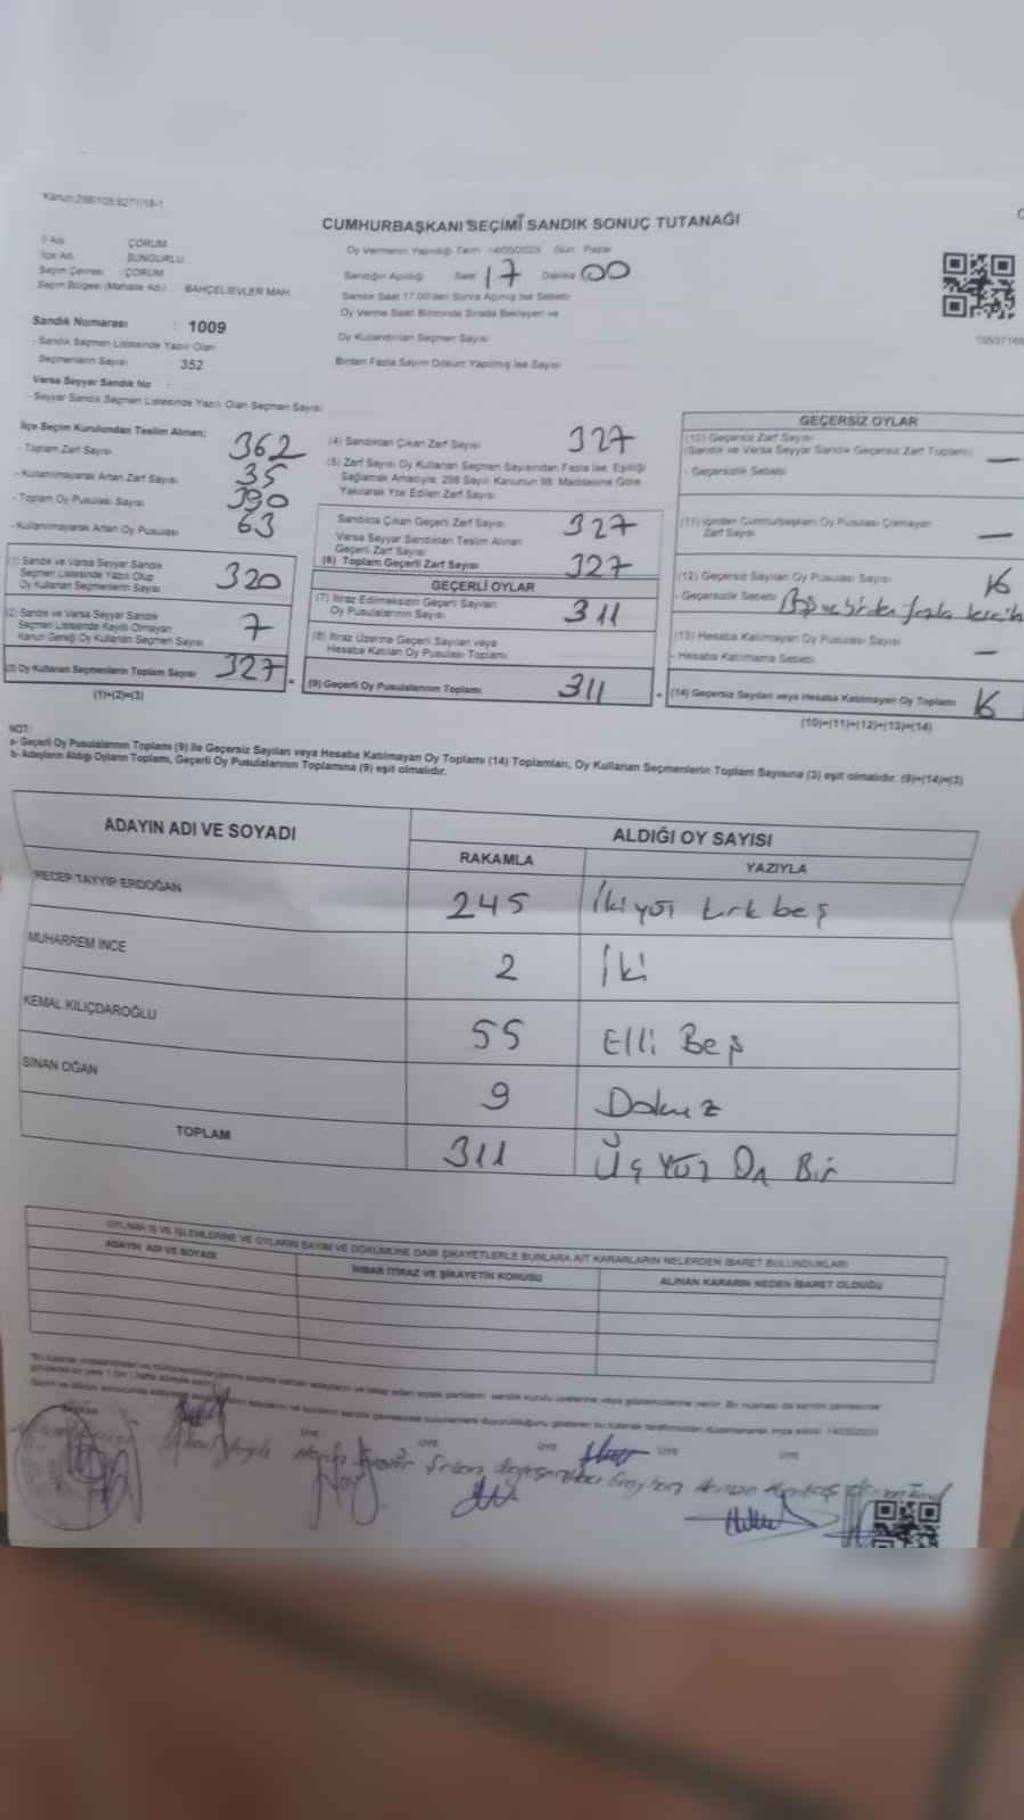 Kanun:298/105,6271/18-1
CUMHURBAŞKANI SEÇİMİ SANDIK SONUÇ TUTANAĞI
İl Adı : ÇORUM
İlçe Adı : SUNGURLU
Seçim Çevresi : ÇORUM
Seçim Bölgesi (Mahalle Adı) : BAHÇELİEVLER MAH.
Sandık Numarası : 1009
- Sandık Seçmen Listesinde Yazılı Olan
Seçmenlerin Sayısı : 352
Varsa Seyyar Sandık No :
- Seyyar Sandık Seçmen Listesinde Yazılı Olan Seçmen Sayısı
Oy Vermenin Yapıldığı Tarih : 14/05/2023 Gün : Pazar
Sandığın Açıldığı Saat 17 Dakika 00
Sandık Saat 17.00'den Sonra Açılmış İse Sebebi
Oy Verme Saati Bitiminde Sırada Bekleyen ve
Oy Kullandırılan Seçmen Sayısı
Birden Fazla Sayım Döküm Yapılmış İse Sayısı
İlçe Seçim Kurulundan Teslim Alınan;
- Toplam Zarf Sayısı 362
- Kullanılmayarak Artan Zarf Sayısı 35
- Toplam Oy Pusulası Sayısı 390
- Kullanılmayarak Artan Oy Pusulası 63
(1) Sandık ve Varsa Seyyar Sandık
Seçmen Listesinde Yazılı Olup
Oy Kullanan Seçmenlerin Sayısı 320
(2) Sandık ve Varsa Seyyar Sandık
Seçmen Listesinde Kayıtlı Olmayan
Kanun Gereği Oy Kullanan Seçmen Sayısı 7
(3) Oy Kullanan Seçmenlerin Toplam Sayısı 327
(1)+(2)=(3)
(4) Sandıktan Çıkan Zarf Sayısı 327
(5) Zarf Sayısı Oy Kullanan Seçmen Sayısından Fazla İse, Eşitliği
Sağlamak Amacıyla, 298 Sayılı Kanunun 98. Maddesine Göre
Yakılarak Yok Edilen Zarf Sayısı
Sandıkta Çıkan Geçerli Zarf Sayısı 327
Varsa Seyyar Sandıktan Teslim Alınan
Geçerli Zarf Sayısı
(6) Toplam Geçerli Zarf Sayısı 327
GEÇERLİ OYLAR
(7) İtiraz Edilmeksizin Geçerli Sayılan
Oy Pusulalarının Sayısı 311
(8) İtiraz Üzerine Geçerli Sayılan veya
Hesaba Katılan Oy Pusulası Toplamı
(9) Geçerli Oy Pusulalarının Toplamı 311
GEÇERSİZ OYLAR
(10) Geçersiz Zarf Sayısı
(Sandık ve Varsa Seyyar Sandık Geçersiz Zarf Toplamı) —
- Geçersizlik Sebebi
(11) İçinden Cumhurbaşkanı Oy Pusulası Çıkmayan
Zarf Sayısı —
(12) Geçersiz Sayılan Oy Pusulası Sayısı 16
- Geçersizlik Sebebi Boş ve birden fazla
(13) Hesaba Katılmayan Oy Pusulası Sayısı —
- Hesaba Katılmama Sebebi
(14) Geçersiz Sayılan veya Hesaba Katılmayan Oy Toplamı 16
(10)+(11)+(12)+(13)=(14)
NOT:
a- Geçerli Oy Pusulalarının Toplamı (9) ile Geçersiz Sayılan veya Hesaba Katılmayan Oy Toplamı (14) Toplamları, Oy Kullanan Seçmenlerin Toplam Sayısına (3) eşit olmalıdır. (9)+(14)=(3)
b- Adayların Aldığı Oyların Toplamı, Geçerli Oy Pusulalarının Toplamına (9) eşit olmalıdır.
ADAYIN ADI VE SOYADI
ALDIĞI OY SAYISI
RAKAMLA YAZIYLA
RECEP TAYYİP ERDOĞAN 245 İkiyüz kırk beş
MUHARREM İNCE 2 İki
KEMAL KILIÇDAROĞLU 55 Elli Beş
SİNAN OĞAN 9 Dokuz
TOPLAM 311 Üç Yüz On Bir
OYLAMA İŞ VE İŞLEMLERİNE VE OYLARIN SAYIM VE DÖKÜMÜNE DAİR ŞİKAYETLERLE BUNLARA AİT KARARLARIN NELERDEN İBARET BULUNDUKLARI
ADAYIN ADI VE SOYADI
İHBAR İTİRAZ VE ŞİKAYETİN KONUSU
ALINAN KARARIN NEDEN İBARET OLDUĞU
ÜYE ÜYE ÜYE ÜYE ÜYE